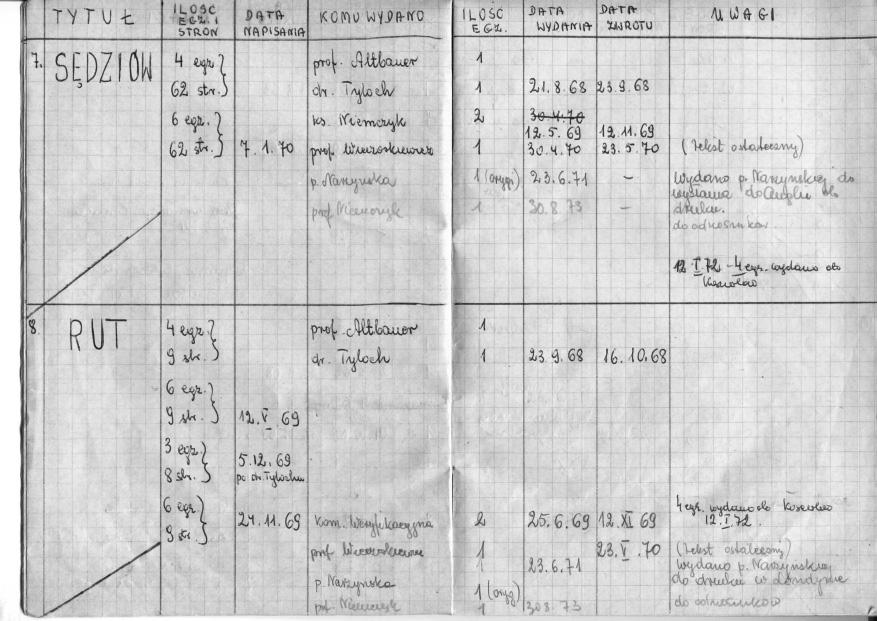 TYTUŁ | ILOŚĆ EGZ. I STRON | DATA NAPISANIA | KOMU WYDANO | ILOŚĆ EGZ. | DATA WYDANIA | DATA ZWROTU | UWAGI
7. SĘDZIÓW | 4 egz. | prof. Altbauer | 1
62 str. | dr. Tyloch | 1 | 21.8.68 | 23.9.68
6 egz. | ks. Niemczyk | 2 | 30.4.70
12.5.69 | 12.11.69
62 str. | 7.1.70 | prof | 1 | 30.4.70 | 23.5.70 | (tekst ostateczny)
p. Narzyńska | 1 (oryg) | 23.6.71 | – | Wydano p. Narzyńskiej do
wysłania do Anglii do
prof Niemczyk | 1 | 30.8.73 | – | druku.
do odnośników
12.I.72 - 4 egz. wydano do
8. RUT | 4 egz. | prof. Altbauer | 1
9 str. | dr. Tyloch | 1 | 23 9.68 | 16.10.68
6 egz.
9 str. | 12.V.69
3 egz.
5.12.69
8 str. | po dr. Tylochu
6 egz. | 4 egz. wydano do
9 str. | 24.11.69 | Kom. Weryfikacyjna | 2 | 25.6.69 | 12.XI 69 | 12.I.72.
prof | 1 | 23.V.70 | (tekst ostateczny)
1 | 23.6.71 | wydano p. Narzyńskiej
p. Narzyńska | do druku w Londynie
1 (oryg)
prof. Niemczyk | 1 | 30 8 73 | do odnośników